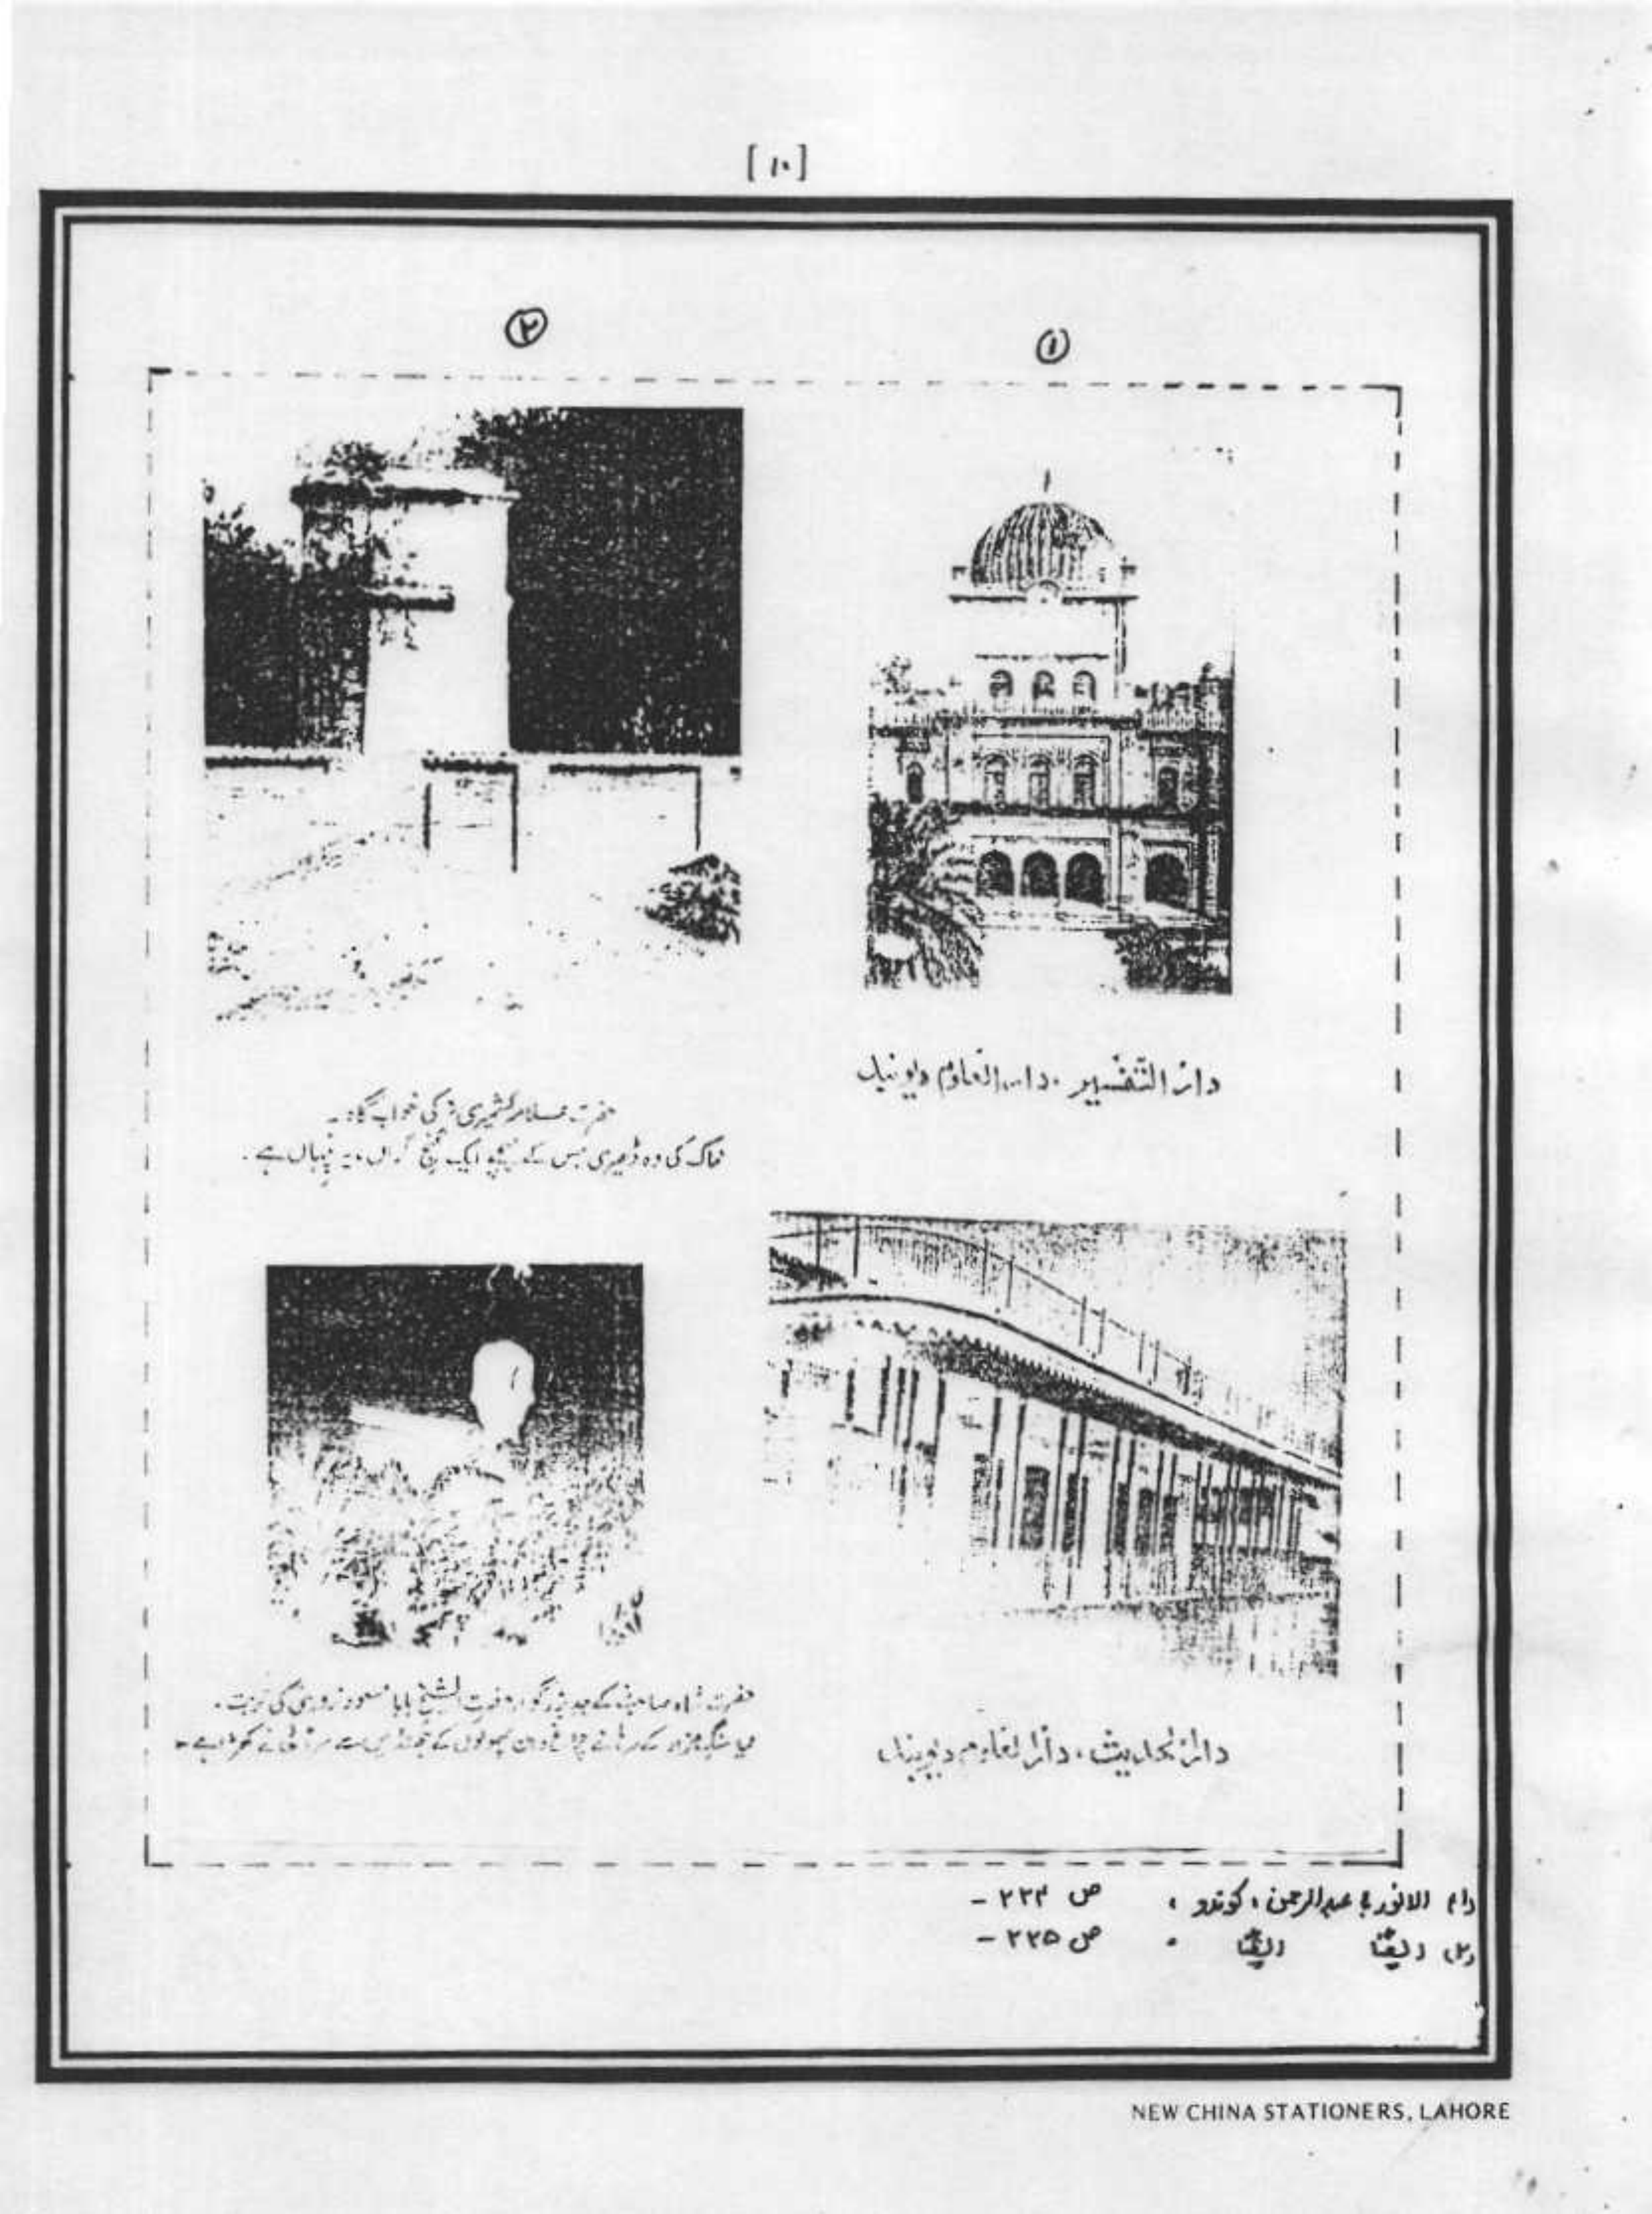 [ ۱۰ ]
①
②
دار التفسیر ، دار العلوم دیوبند
حضرت علامہ کشمیریؒ کی خواب گاہ۔
خاک کی وہ ڈھیری جس کے نیچے ایک گنج گراں مایہ پنہاں ہے۔
دار الحدیث ، دار العلوم دیوبند
حضرت شاہ صاحبؒ کے جد بزرگوار حضرت الشیخ بابا مسعود نروریؒ کی تربت۔
سنگ مزار کے سرہانے پھولوں کے سے سر اٹھائے کھڑا ہے۔
(۱) الانور ؛ عبدالرحمن ، کوندو ، ص ۲۳۴ –
(۲) ایضاً ایضاً ، ص ۲۳۵ –
NEW CHINA STATIONERS, LAHORE